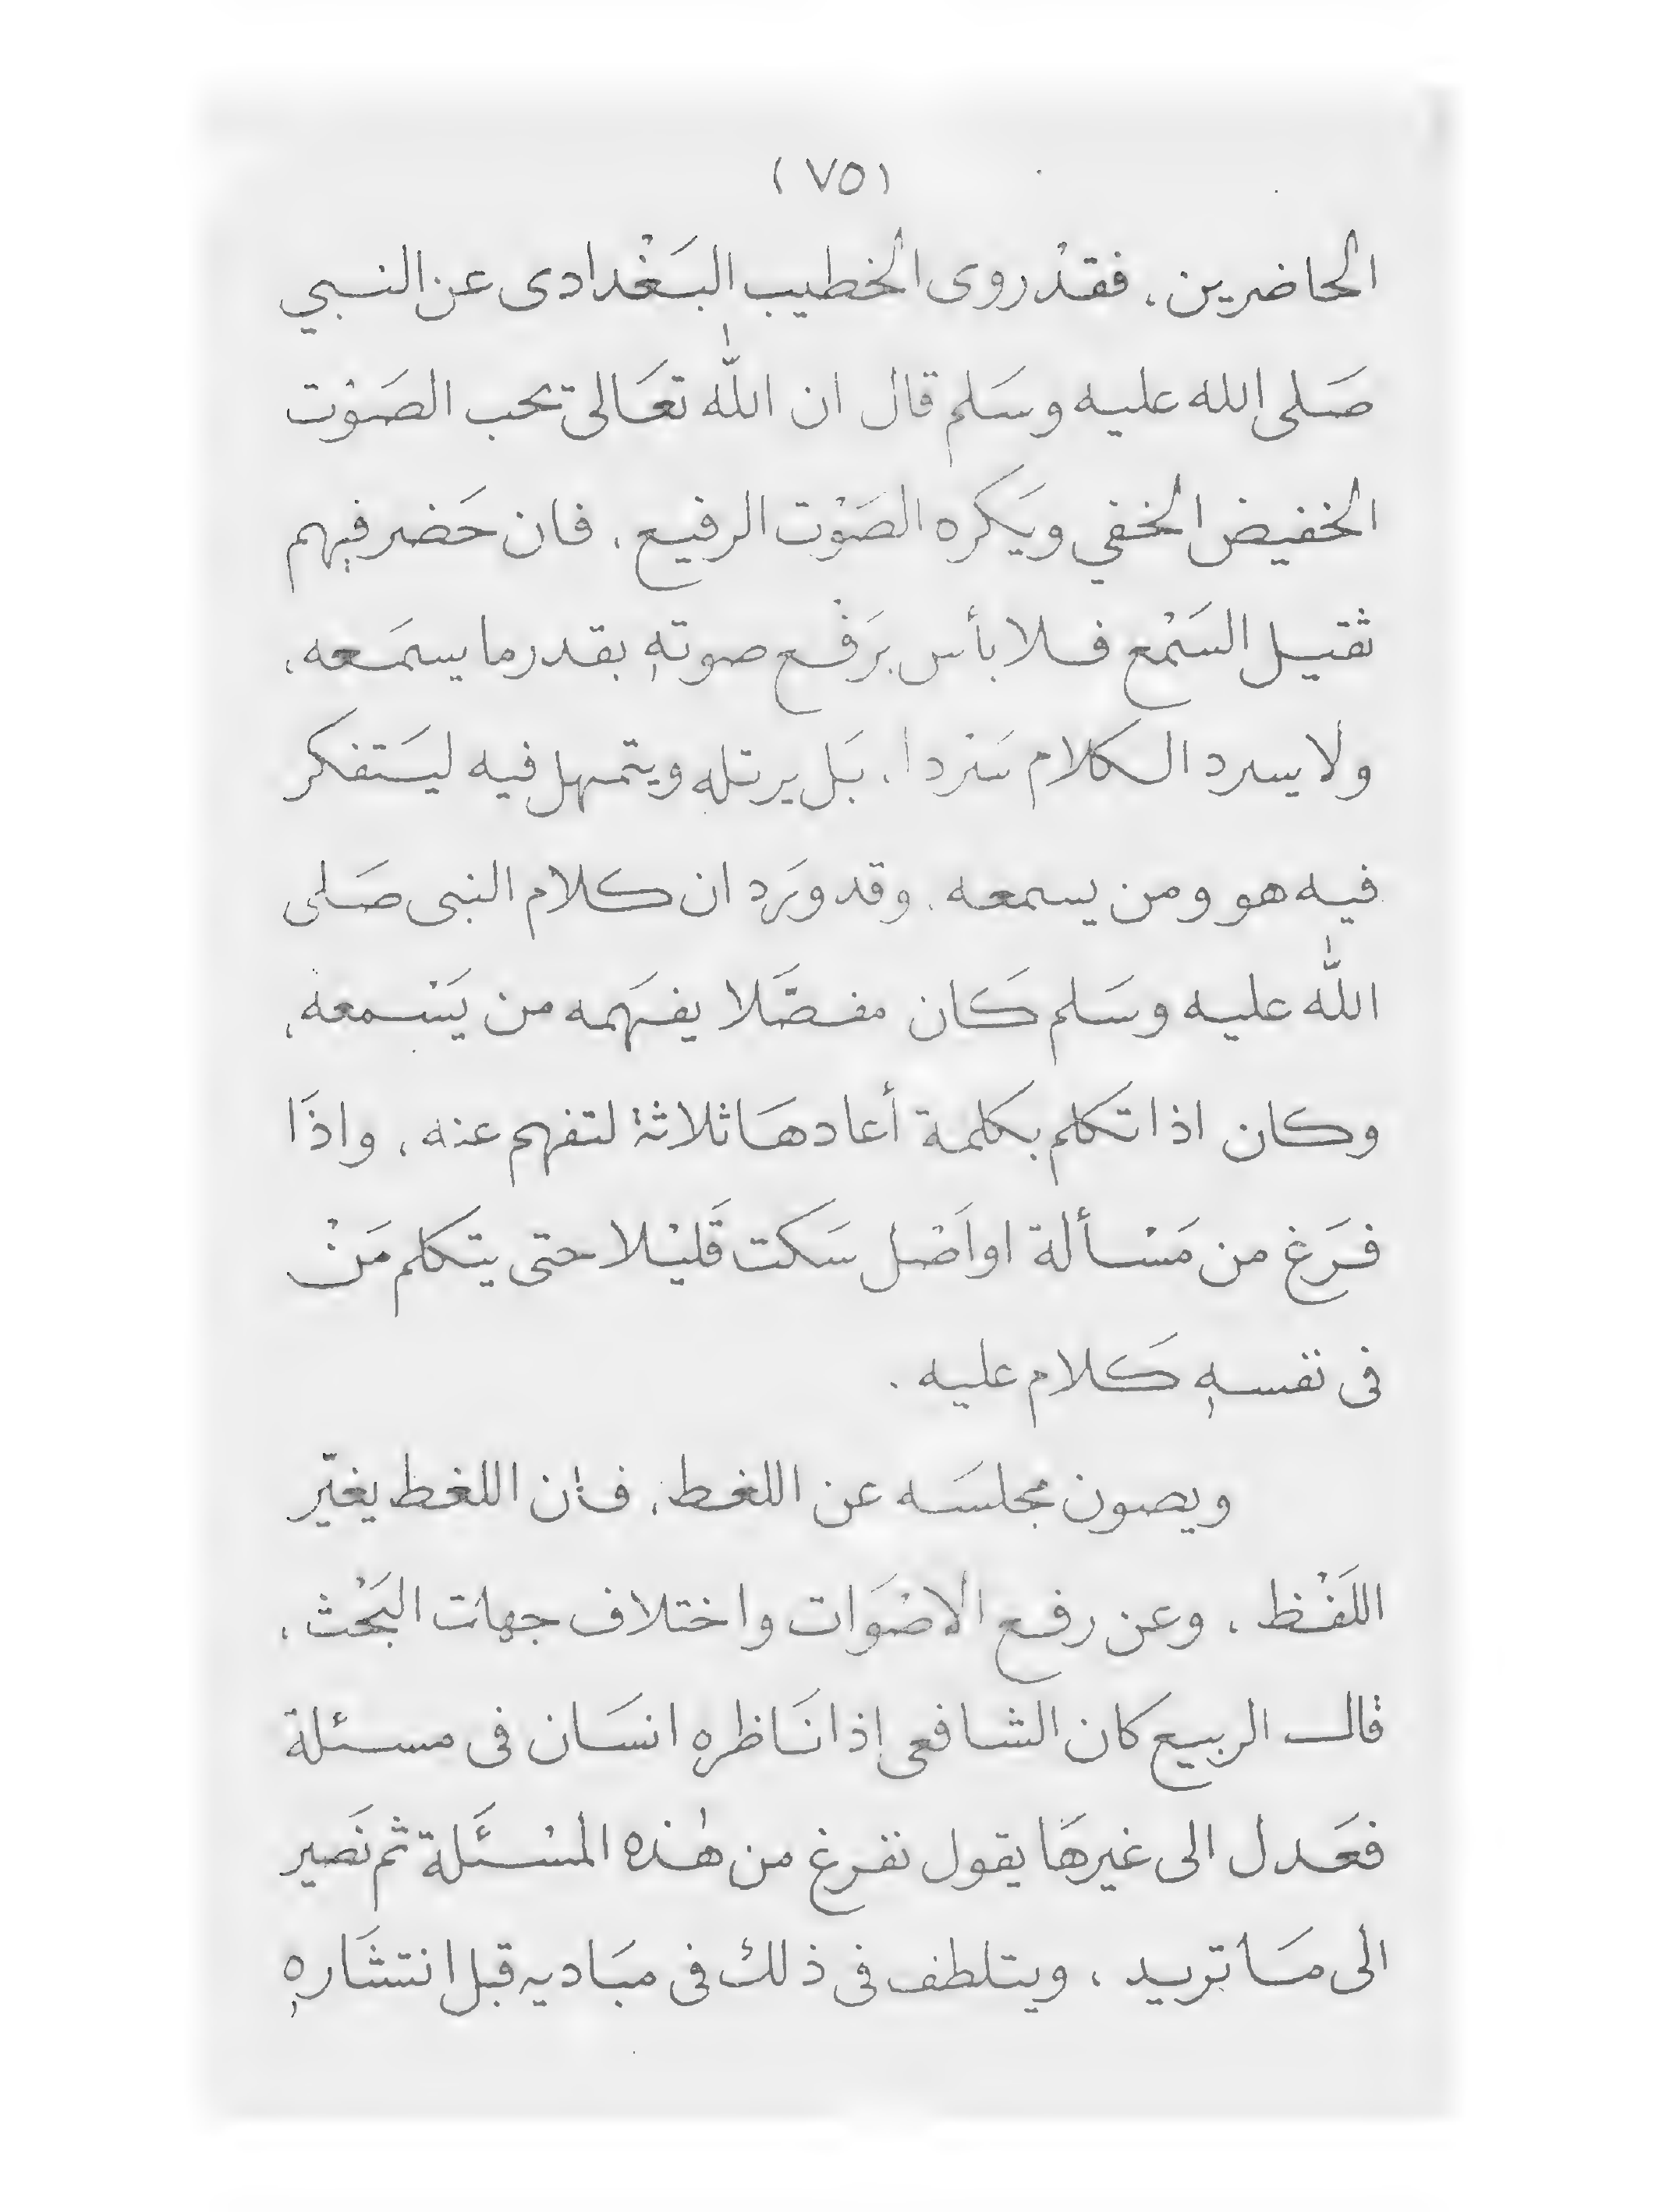 (٧٥)
الحاضرين، فقدْ روى الخطيب البَغْدادى عن النبي
صَلى الله عليه وسَلم قال ان اللّٰه تعَالى يحب الصَوْت
الخفيض الخفي ويَكره الصَوْت الرفيع، فان حَضر فيهم
ثقيل السَمْع فلا بأس برَفْع صوتهٖ بقدر ما يسمَعه،
ولا يسرد الكلام سَرْدا، بَل يرتله ويتمهل فيه ليَستفكر
فيه هو ومن يسمعه. وقد ورَد ان كلام النبى صَلى
اللّٰه عليه وسَلم كَان مفصَّلا يفهَمه من يَسْمعه،
وكان اذا تكلم بكلمة أعادهَا ثلاثة لتفهم عنه، واذَا
فرَغ من مَسْألة او اَصْل سَكت قَليْلا حتى يتكلم مَنْ
فى نفسهٖ كَلام عليه .
ويصون مجلسَه عن اللغط، فإن اللغط يغيّر
اللَفْظ ، وعن رفع الاصْوَات واختلاف جهات البَحْث ،
قال الربيع كان الشافعى إذا نَاظره انسَان فى مسئلة
فعَدل الى غيرهَا يقول نفرغ من هٰذه المسْئَلة ثم نَصير
الى مَا تريد ، ويتلطف فى ذلك فى مبَاديه قبل انتشَارهٖ